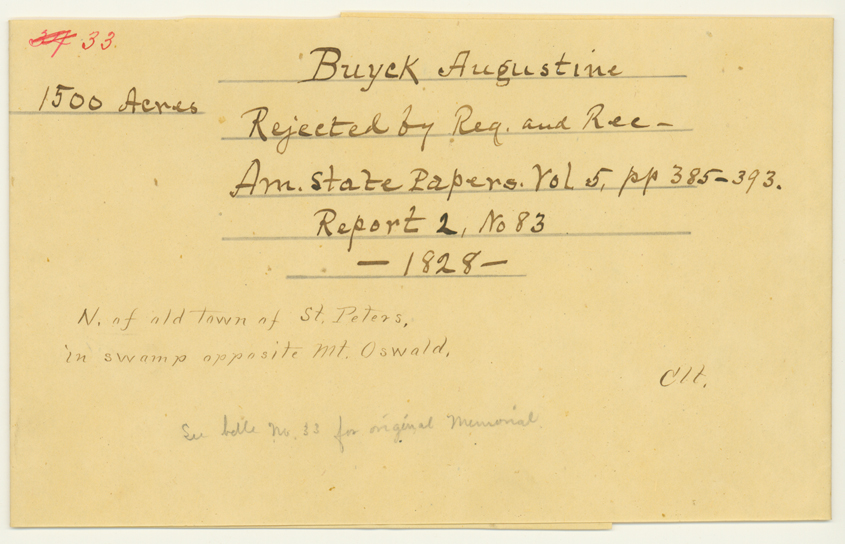 33
Buyck Augustine
1500 Acres
Rejected by Reg. and Rec -
Am. State Papers. Vol 5, pp 385-393.
Report 2, No 83
- 1828 -
N. of old town of St. Peters,
in swamp opposite Mt. Oswald.
See bdle No. 33 for original Memorial